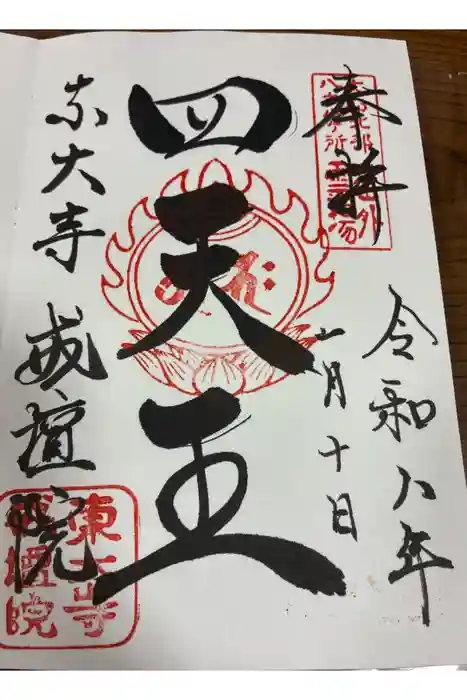 奉拝
令和八年
一月十日
四天王
東大寺 戒壇院
東大寺
戒壇院